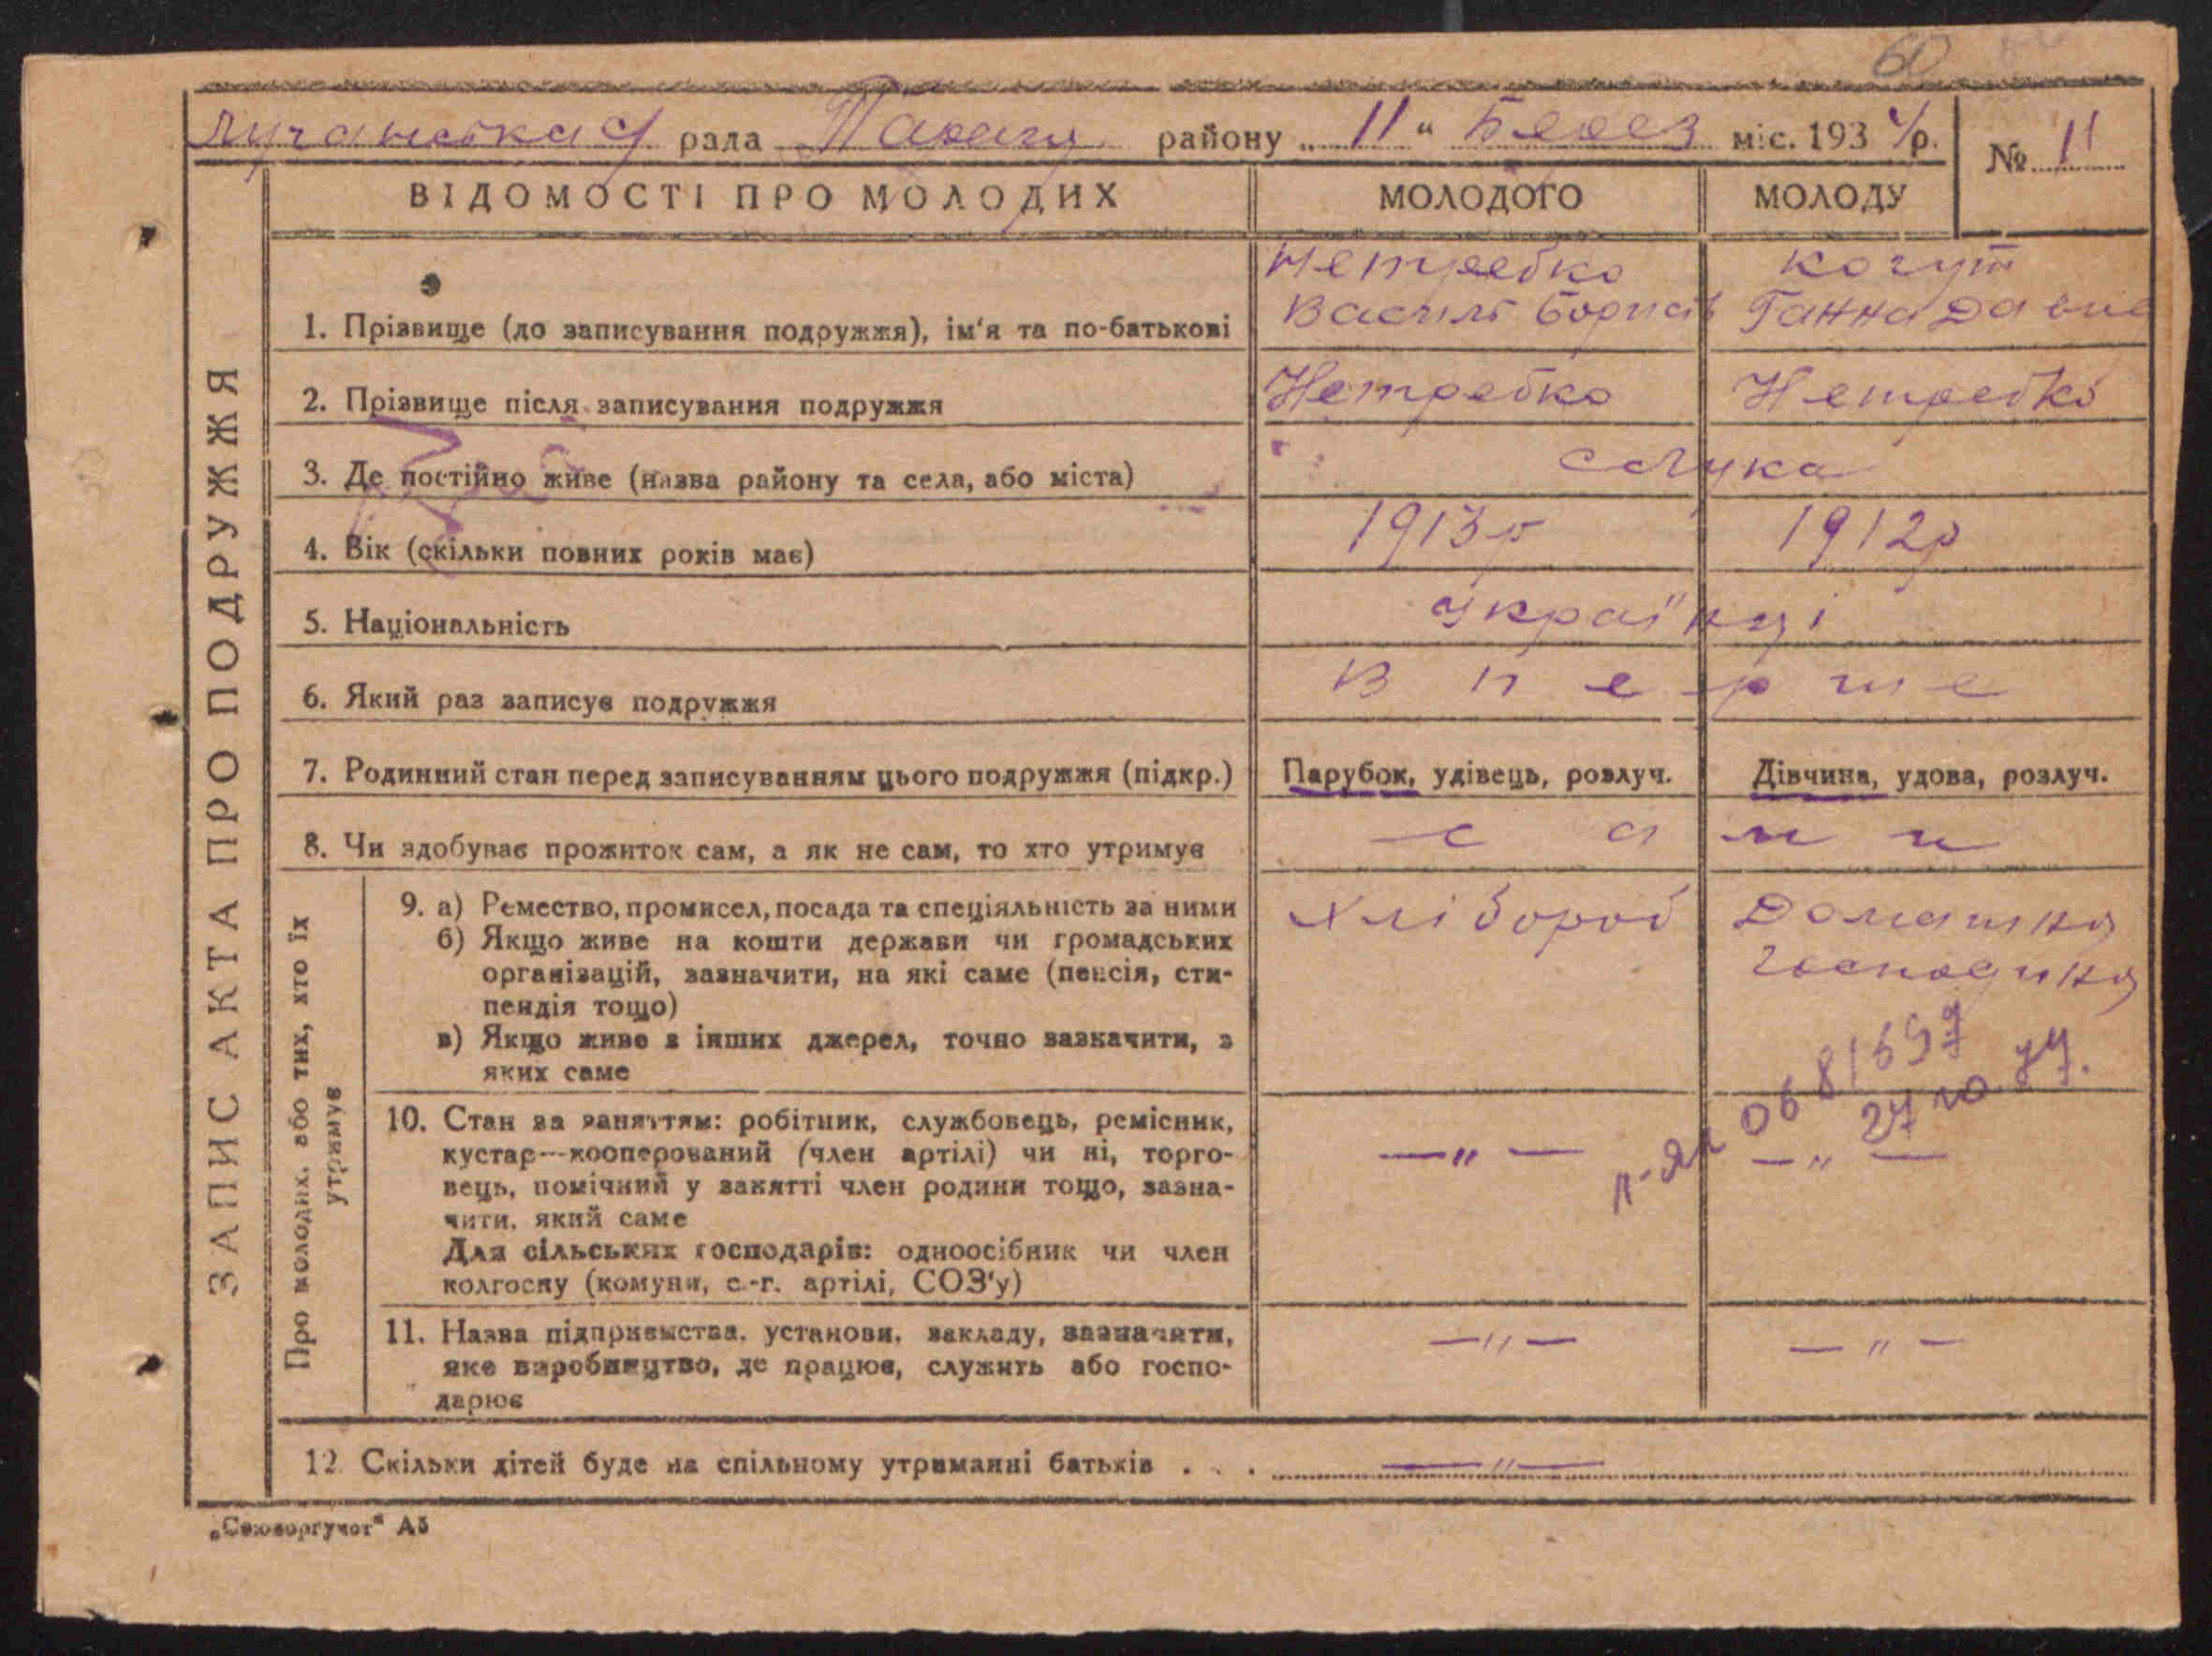 60
Лучанська с/ рада Таращ. району „ 11 " Берез міс. 193 4 р. № 11
ЗАПИС АКТА ПРО ПОДРУЖЖЯ
ВІДОМОСТІ ПРО МОЛОДИХ МОЛОДОГО МОЛОДУ
Нетребко Когут
1. Прізвище (до записування подружжя), ім'я та по-батькові Василь Борисів Ганна
2. Прізвище після записування подружжя Нетребко Нетребко
3. Де постійно живе (назва району та села, або міста) с Лука
4. Вік (скільки повних років має) 1913р 1912р
5. Національність Українці
6. Який раз записує подружжя Вперше
7. Родинний стан перед записуванням цього подружжя (підкр.) Парубок, удівець, розлуч. Дівчина, удова, розлуч.
8. Чи здобуває прожиток сам, а як не сам, то хто утримує сами
Про молодих, або тих, хто їх
утримує
9. а) Ремество, промисел, посада та спеціяльність за ними Хлібороб Домашня
б) Якщо живе на кошти держави чи громадських господиня
організацій, зазначити, на які саме (пенсія, сти-
пендія тощо)
в) Якщо живе з інших джерел, точно зазначити, з
яких саме
0681697
27 10 77.
10. Стан за заняттям: робітник, службовець, ремісник,
кустар—кооперований (член артілі) чи ні, торго- —„— —„—
вець, помічний у занятті член родини тощо, зазна-
чити, який саме
Для сільських господарів: одноосібник чи член
колгоспу (комуни, с.-г. артілі, СОЗ'у)
11. Назва підприємства, установи, закладу, зазначити, —„— —„—
яке виробництво, де працює, служить або госпо-
дарює
12. Скільки дітей буде на спільному утриманні батьків . . . —„—
„Союзоргучот" А5